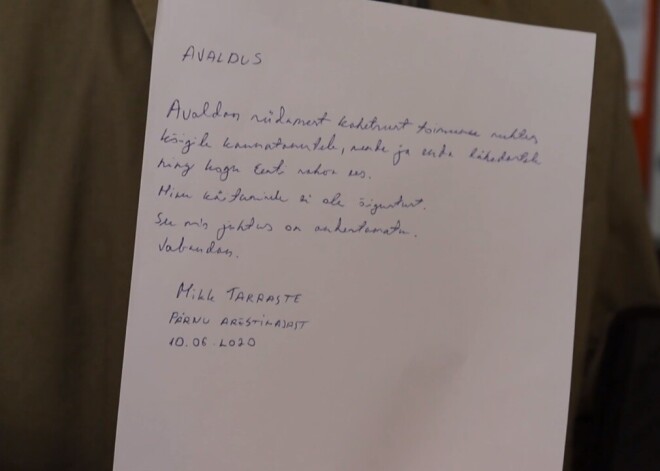 AVALDUS
Avaldan südamest kahetsust toimunu suhtes
kõigile kannatanutele, nende ja enda lähedastele
ning kogu Eesti rahva ees.
Minu käitumisele ei ole õigustust.
See mis juhtus on andestamatu.
Vabandan.
Mikk TARRASTE
PÄRNU ARESTIMAJAST
10.06 2020